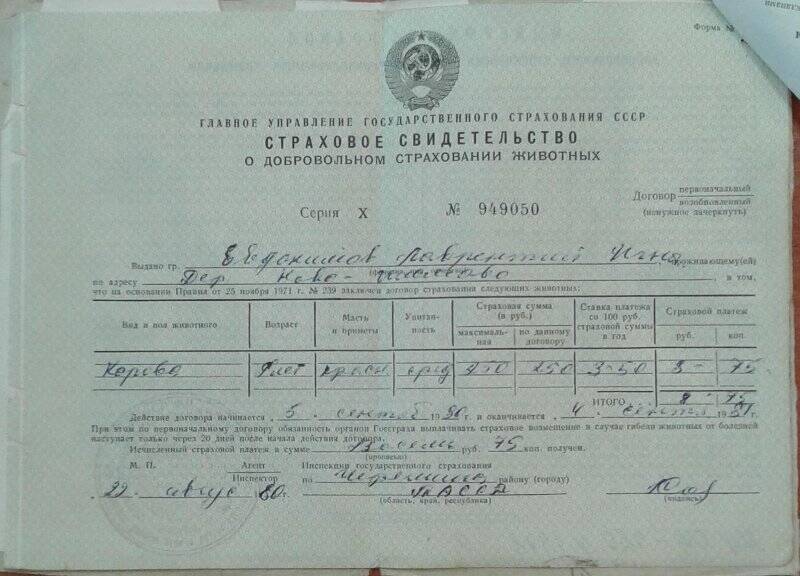 Форма №
ГЛАВНОЕ УПРАВЛЕНИЕ ГОСУДАРСТВЕННОГО СТРАХОВАНИЯ СССР
СТРАХОВОЕ СВИДЕТЕЛЬСТВО
О ДОБРОВОЛЬНОМ СТРАХОВАНИИ ЖИВОТНЫХ
Серия X № 949050
Договор первоначальный
возобновленный
(ненужное зачеркнуть)
Выдано гр. Евдокимов Лаврентий Игна проживающему(ей)
по адресу Дер. Ново- в том,
что на основании Правил от 25 ноября 1971 г. № 239 заключен договор страхования следующих животных:
Вид и пол животного Возраст Масть и приметы Упитанность Страховая сумма (в руб.) Ставка платежа со 100 руб. страховой суммы в год Страховой платеж
максимальная по данному договору руб. коп.
Корова лет красн сред 250 3-50 8 75
ИТОГО 8 75
Действие договора начинается 5 сентяб 1980г. и оканчивается 4 сентяб 1981г.
При этом по первоначальному договору обязанность органов Госстраха выплачивать страховое возмещение в случае гибели животных от болезней
наступает только через 20 дней после начала действия договора.
Исчисленный страховой платеж в сумме Восемь руб. 75 коп. получен.
(прописью)
М. П. Агент
Инспектор
Инспекции государственного страхования
по району (городу)
22 август 80г. ТАССР
(область, край, республика)
(подпись)